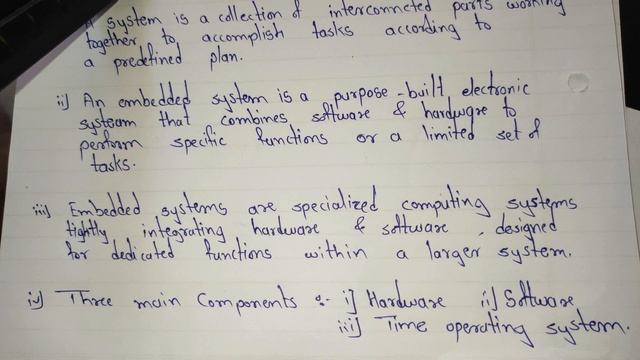 A system is a collection of interconneted parts working
together to accomplish tasks according to
a predefined plan.
ii) An embedded system is a purpose-built electronic
systeam that combines software & hardware to
perform specific functions or a limited set of
tasks.
iii) Embedded systems are specialized computing systems
tightly integrating hardware & software, designed
for dedicated functions within a larger system.
iv) Three main Components :- i] Hardware ii] Software
iii] Time operating system.